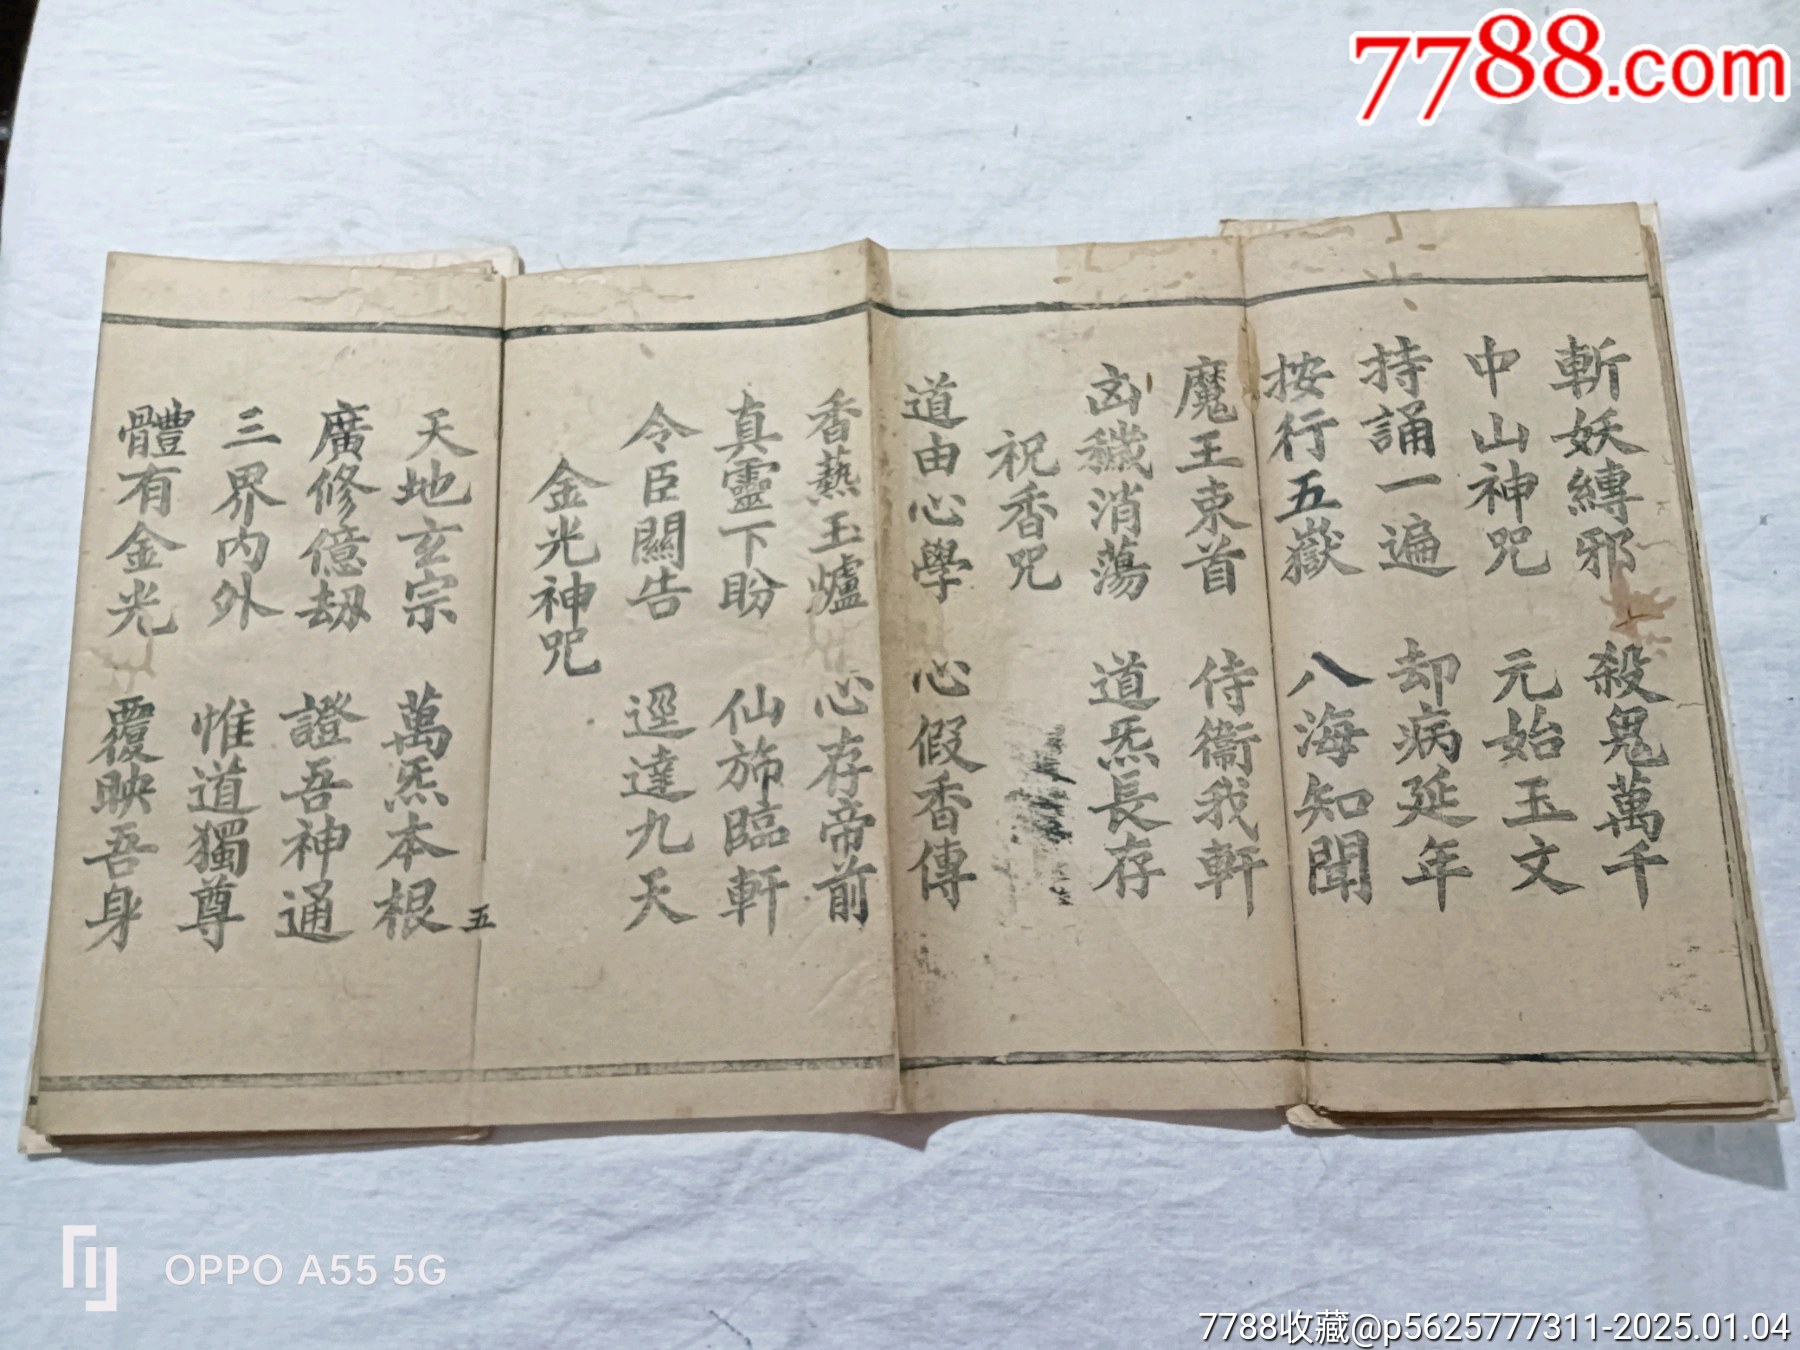 7788.com
斬妖縛邪 殺鬼萬千
中山神咒 元始玉文
持誦一遍 却病延年
按行五嶽 八海知聞
魔王束首 侍衛我軒
凶穢消蕩 道炁長存
祝香咒
道由心學 心假香傳
香爇玉爐 心存帝前
真靈下盼 仙旆臨軒
令臣關告 逕達九天
金光神咒
五
天地玄宗 萬炁本根
廣修億劫 證吾神通
三界內外 惟道獨尊
體有金光 覆映吾身
OPPO A55 5G
7788收藏@p5625777311-2025.01.04